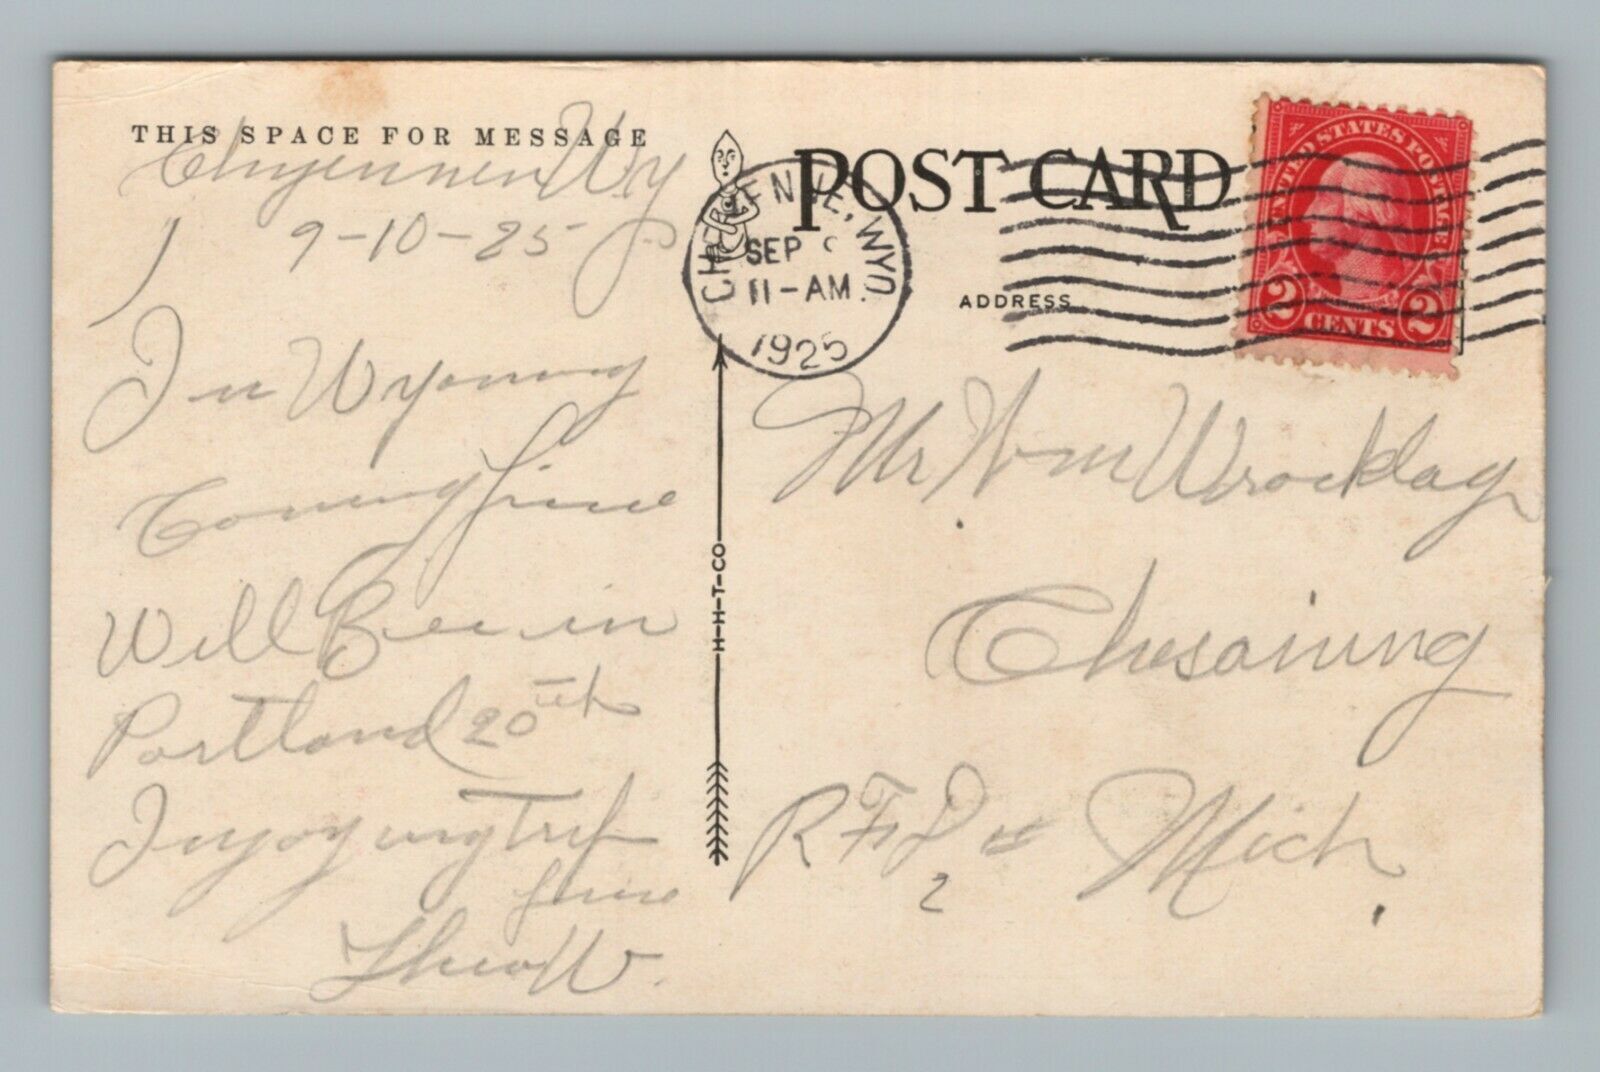 THIS SPACE FOR MESSAGE
Chyennen Wy
9-10-25
In Wyoming
Coming fine
Will Bee in
Portland 20th
Injoyung Trip
fine
Theo W.
CHEYENNE, WYO.
SEP
11-AM
1925
POST CARD
ADDRESS
UNITED STATES POSTAGE
2 CENTS 2
H-H-T-CO
Mr. Wm Wrocklag
Chesaning
R F D #
2
Mich.